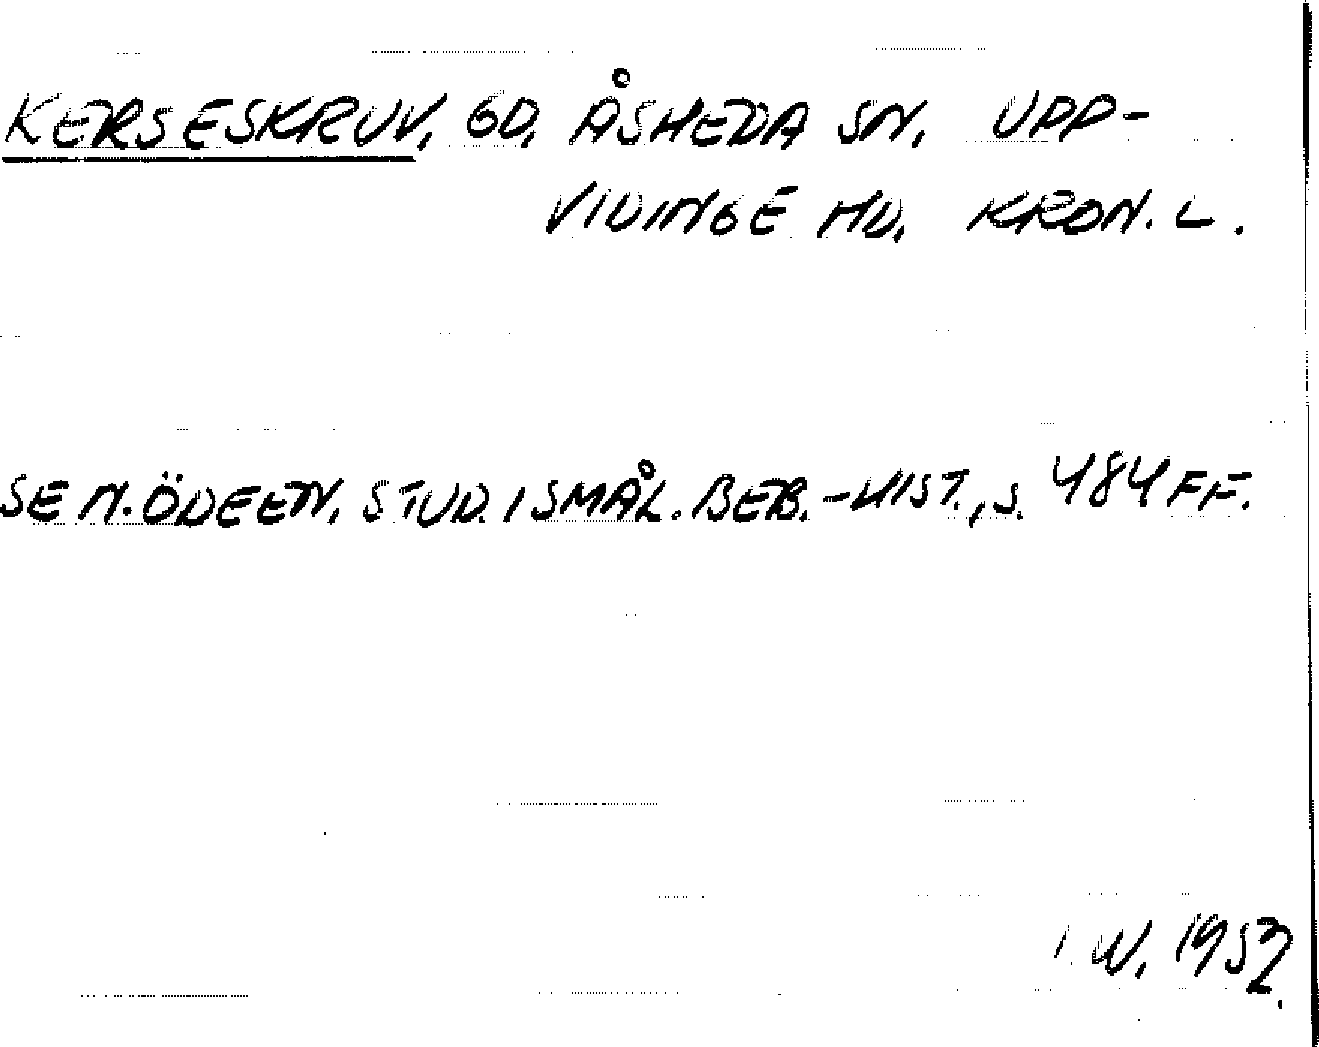 KERSESKRUV, GD, ÅSHEDA SN, UPP-
VIDINGE HD, KRON. L.
SE N. ÖDEEN, STUD. I SMÅL. BEB.-HIST., S. 484 FF.
I. W. 1952.